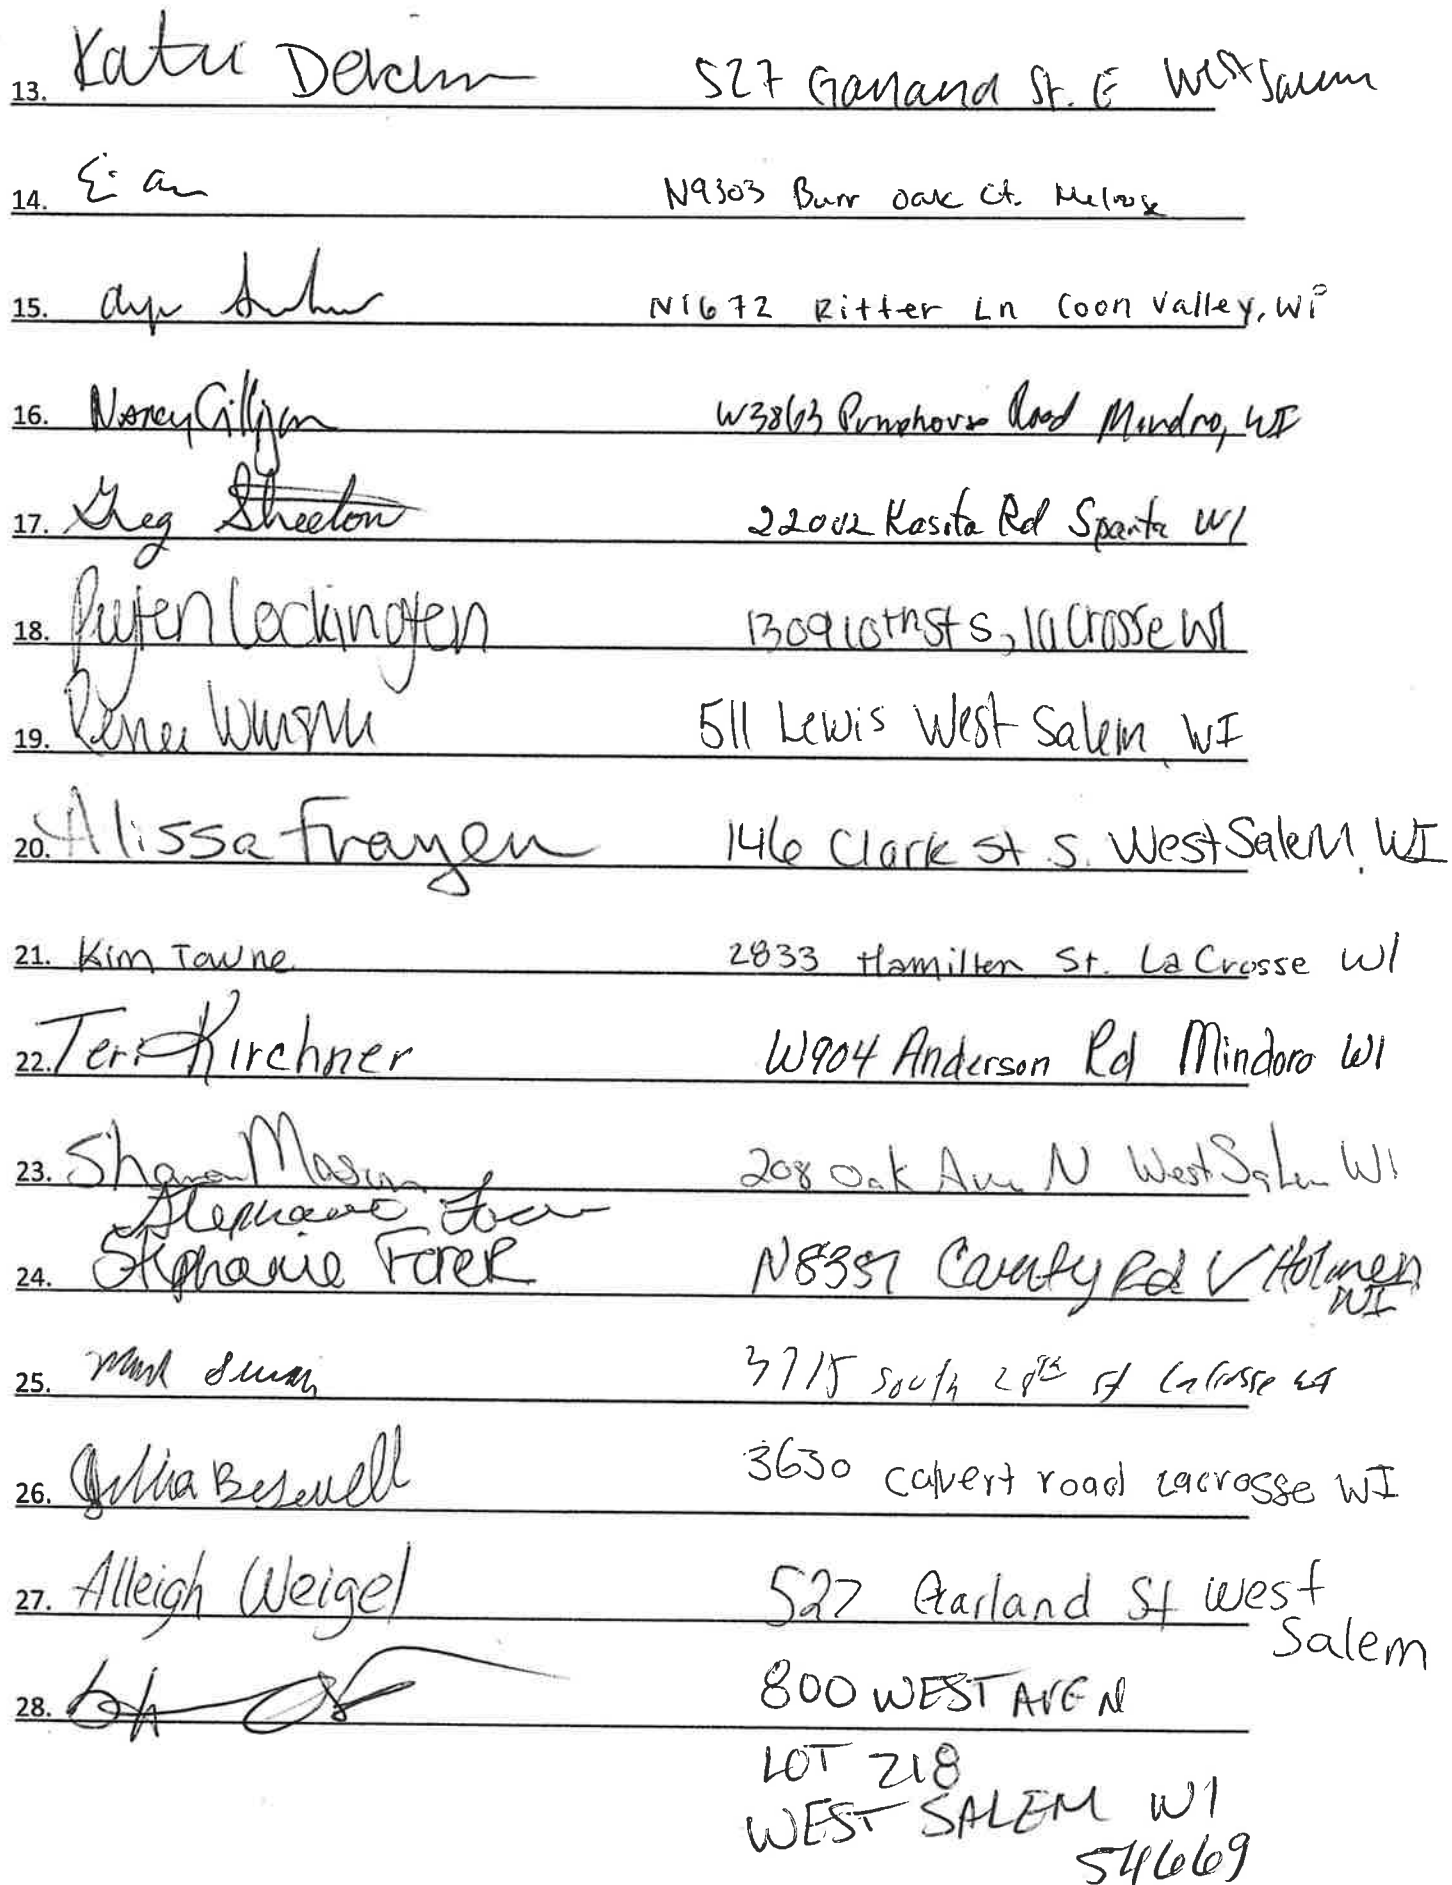 13. Katie 527 Garland St. E West Salem
14. N9303 Burr Oak Ct. Melrose
15. N1672 Ritter Ln Coon Valley, Wi
16. Nancy Gilligan W3863 Pumphouse Road Mindoro, WI
17. Greg Sheeton Kasota Rd Sparta WI
18. Lockington 1309 10th St S, La Crosse WI
19. Renee 511 Lewis West Salem WI
20. Alissa Frayen 146 Clark St S. West Salem, WI
21. Kim Towne 2833 Hamilton St. La Crosse WI
22. Teri Kirchner W904 Anderson Rd Mindoro WI
23. Sharon Mason 208 Oak Ave N West Salem WI
Stephanie
24. Stephanie Ferer County Rd V Holmen
WI
25. 3715 South 28th St LaCrosse WI
26. Julia 3630 Calvert road Lacrosse WI
27. Alleigh Weigel 527 Garland St West
Salem
28. 800 WEST AVE N
LOT 218
WEST SALEM WI
54669